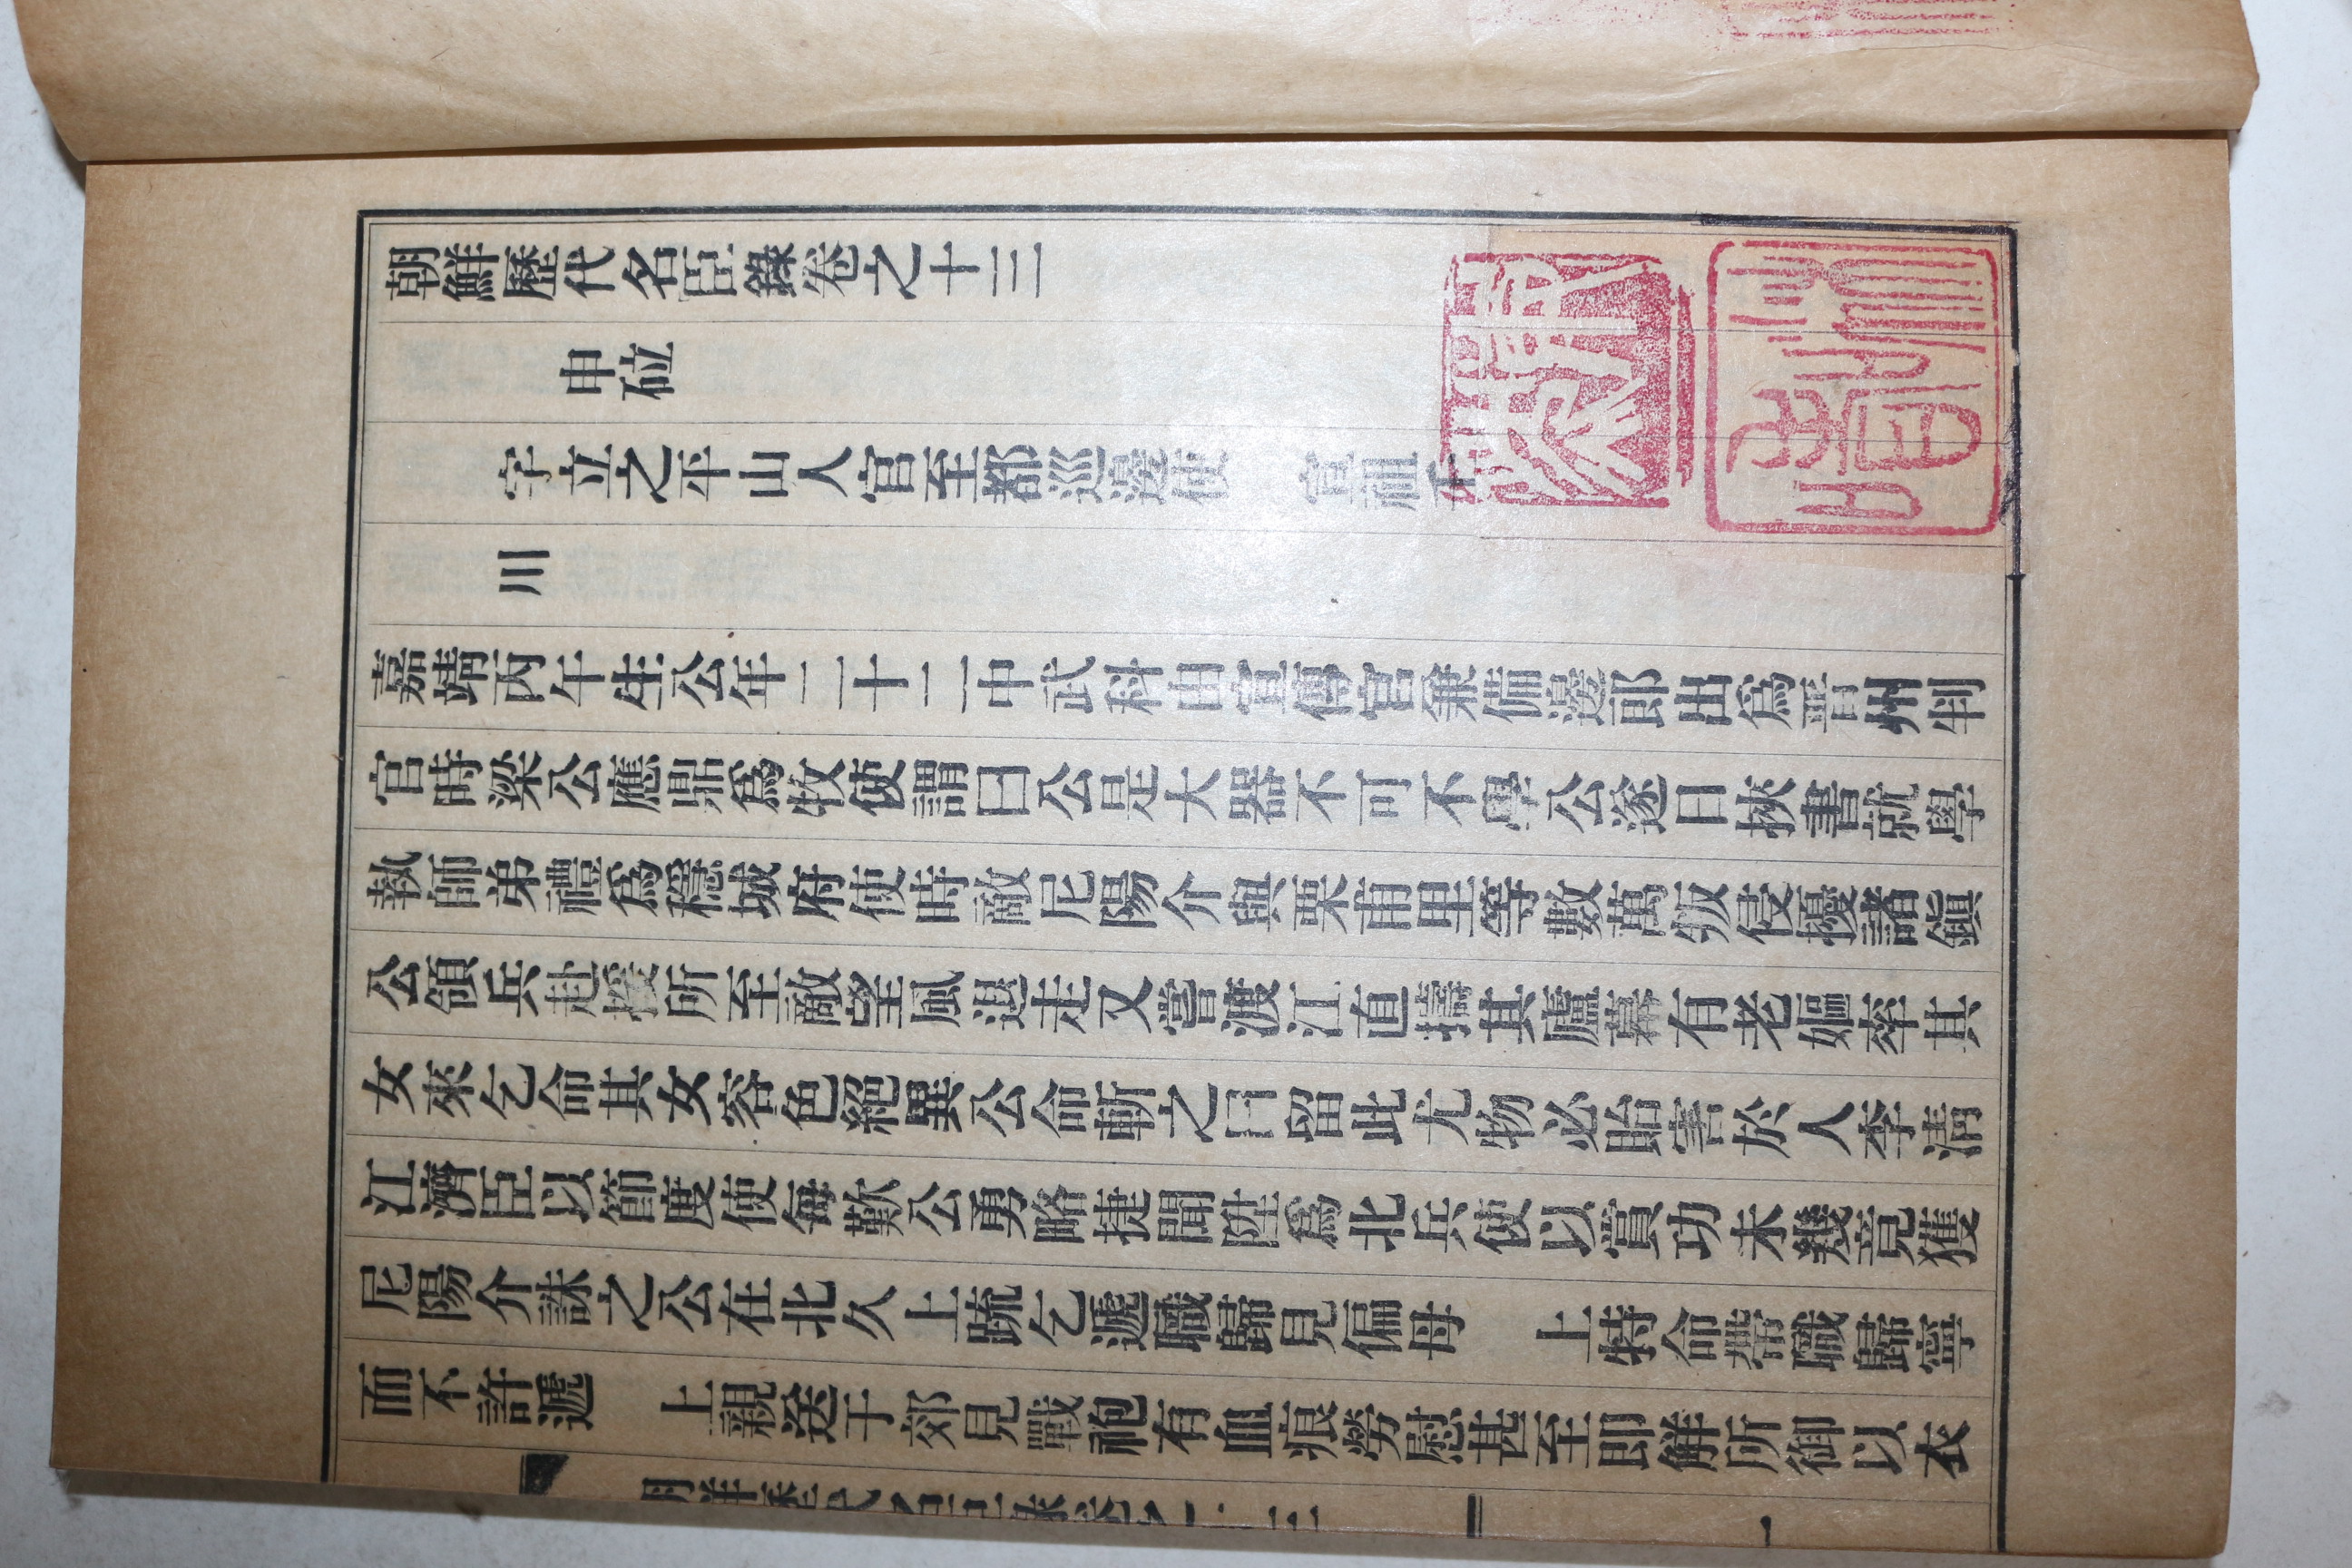 朝鮮歷代名臣錄卷之十三
申砬
字立之平山人官至都巡邊使　宣祖壬
川
嘉靖丙午生公年二十二中武科由宣傳官兼備邊郎出爲晋州判
官時梁公應鼎爲牧使謂曰公是大器不可不學公遂日挾書就學
執師弟禮爲穩城府使時敵尼陽介與栗甫里等數萬叛侵擾諸鎭
公領兵赴援所至敵望風退走又嘗渡江直擣其廬幕有老嫗率其
女來乞命其女容色絕異公命斬之曰留此尤物必貽害於人李淸
江濟臣以節度使每歎公勇略捷聞陞爲北兵使以賞功未幾竟獲
尼陽介誅之公在北久上疏乞遞職歸見偏母　上特命帶職歸寧
而不許遞　上親送于郊見戰袍有血痕勞慰甚至即解所御以衣
朝鮮歷代名臣錄卷之十三
一